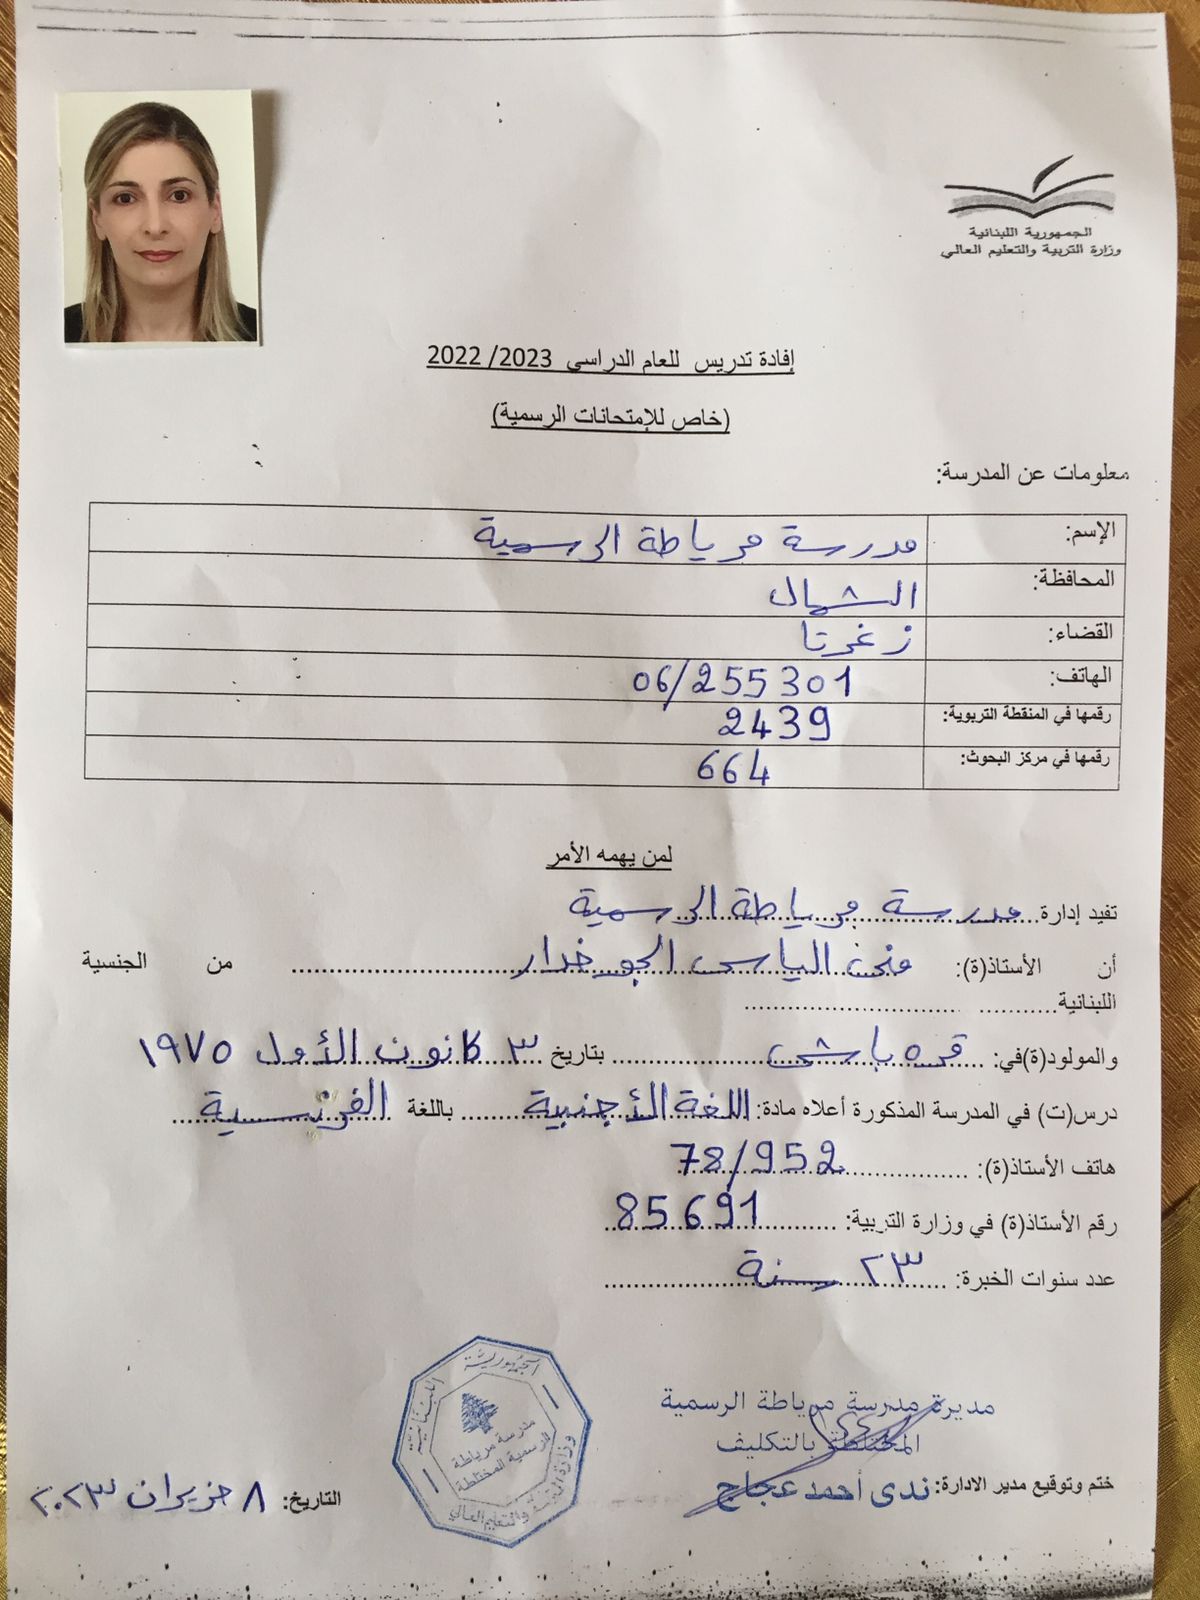 الجمهورية اللبنانية
وزارة التربية والتعليم العالي
إفادة تدريس للعام الدراسي 2023/ 2022
(خاص للإمتحانات الرسمية)
معلومات عن المدرسة:
الإسم: مدرسة مرياطة الرسمية
المحافظة: الشمال
القضاء: زغرتا
الهاتف: 06/255301
رقمها في المنقطة التربوية: 2439
رقمها في مركز البحوث: 664
لمن يهمه الأمر
تفيد إدارة مدرسة مرياطة الرسمية
أن الأستاذ(ة): منى الياس الجوخدار من الجنسية
اللبنانية
والمولود(ة)في: قره باش بتاريخ ٣ كانون الأول ١٩٧٥
درس(ت) في المدرسة المذكورة أعلاه مادة: اللغة الأجنبية باللغة الفرنسية
هاتف الأستاذ(ة): 78/952
رقم الأستاذ(ة) في وزارة التربية: 85691
عدد سنوات الخبرة: ٢٣ سنة
مديرة مدرسة مرياطة الرسمية
المختلطة بالتكليف
ختم وتوقيع مدير الادارة: ندى أحمد عجاج
التاريخ: ٨ حزيران ٢٠٢٣
الجمهورية اللبنانية
وزارة التربية والتعليم العالي
مدرسة مرياطة
الرسمية المختلطة